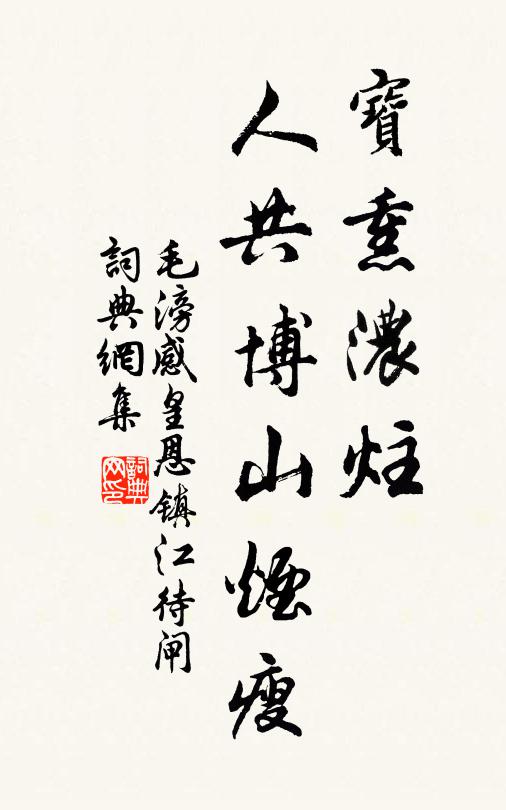 寶熏濃炷
人共博山煙瘦
毛滂感皇恩镇江待闸
詞典網集
詞典网印